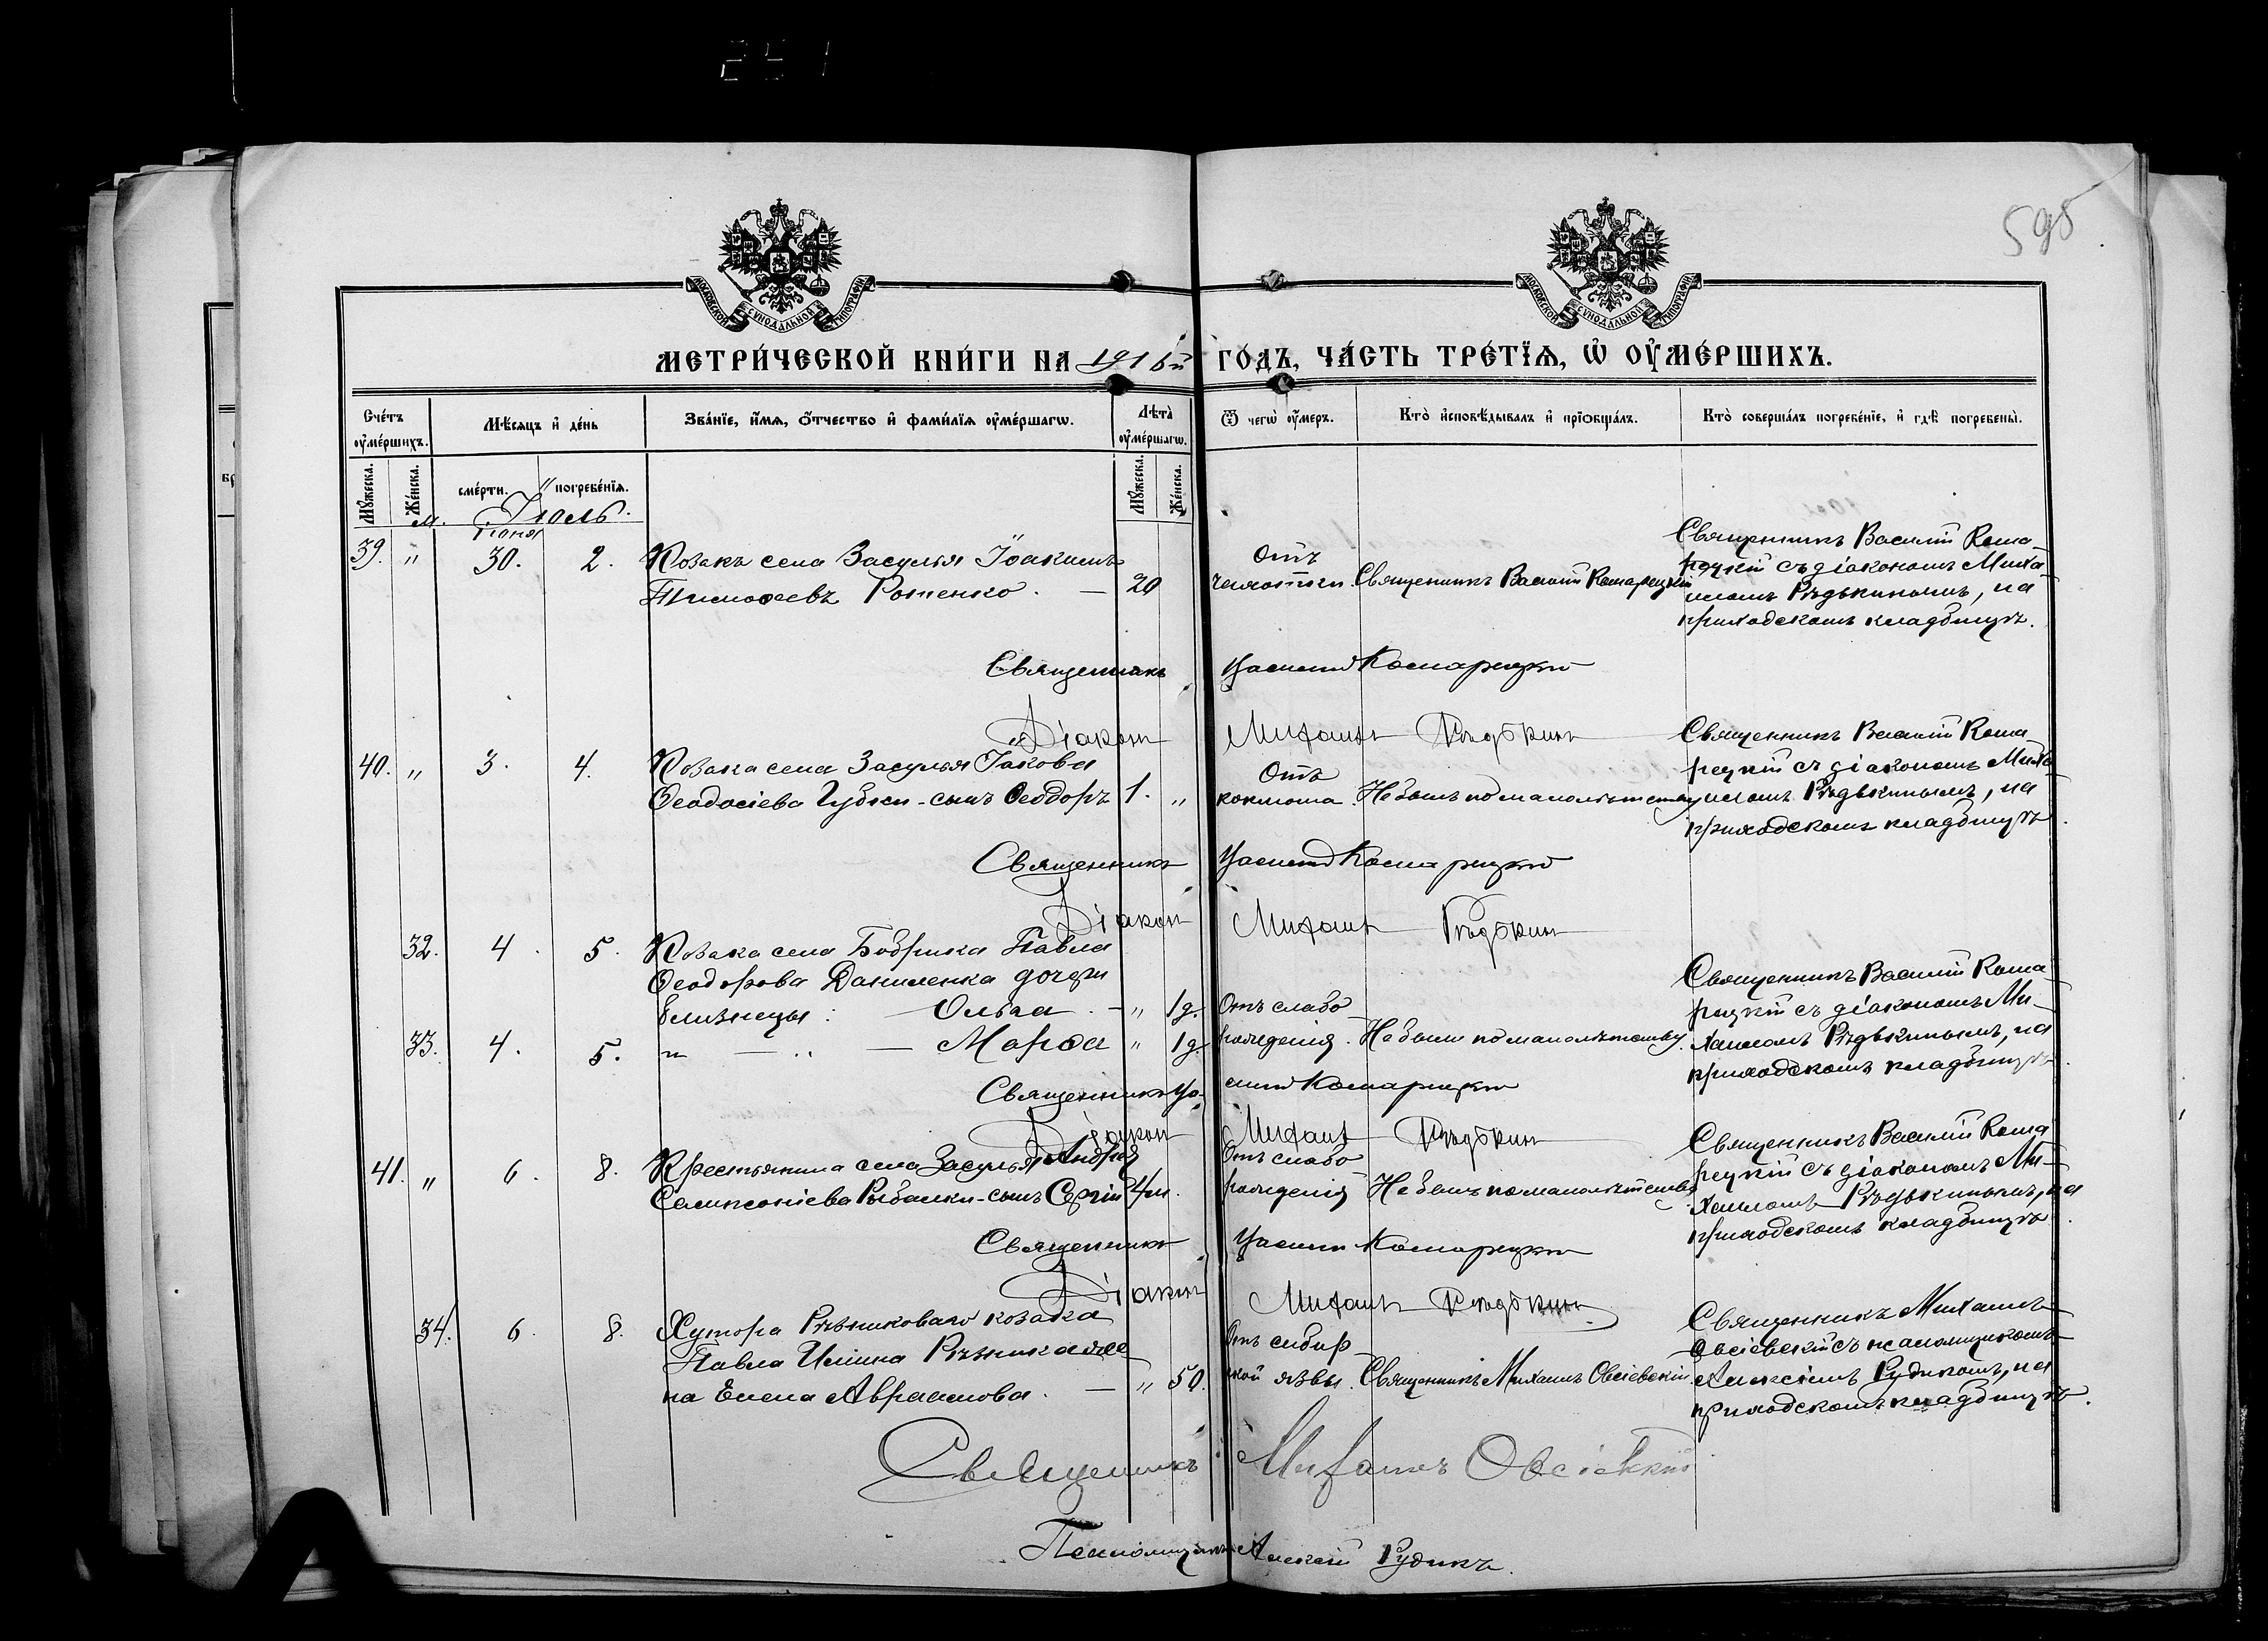 251
595
МОСКОВСКОЙ СѴНОДАЛЬНОЙ ТИПОГРАФІИ
МОСКОВСКОЙ СѴНОДАЛЬНОЙ ТИПОГРАФІИ
МЕТРИ́ЧЕСКОЙ КНИ́ГИ НА 1916й ГО́ДЪ, ЧА́СТЬ ТРЕ́ТЇѦ, Ѡ҆ ОУ҆МЕ́РШИХЪ.
Сче́тъ оу҆ме́ршихъ.
Мѣ́сяцъ и҆ де́нь
Зва́нїе, и҆́мя, ѻ҆́тчество и҆ фами́лїя оу҆ме́ршагѡ.
Лѣта̀ оу҆ме́ршагѡ.
Ѿ чегѡ̀ оу҆́меръ.
Кто̀ и҆сповѣ́дывалъ и҆ прїѡбща́лъ.
Кто̀ соверша́лъ погребе́нїе, и҆ гдѣ̀ погребены̀.
Мꙋ́жеска.
Же́нска.
сме́рти.
погребе́нїя.
Мꙋ́жеска.
Же́нска.
м. Іюль.
Іюня
39. " 30. 2. Козакъ села Засулья Іоакимъ
Тимофеевъ Рошенко. — 20
Отъ
чахотки. Священникъ Василій Комарецкій
Священникъ Василій Кома-
рецкій съ діакономъ Миха-
иломъ Рѣдькинымъ, на
приходскомъ кладбищѣ.
Священникъ Василій Комарецкій
Діаконъ Михаилъ Рѣдькинъ
40. " 3. 4. Козака села Засулья Іакова
Ѳеодосіева Губки - сынъ Ѳеодоръ 1. "
Отъ
коклюша. Не былъ по малолѣтству
Священникъ Василій Кома-
рецкій съ діакономъ Миха-
иломъ Рѣдькинымъ, на
приходскомъ кладбищѣ.
Священникъ Василій Комарецкій
Діаконъ Михаилъ Рѣдькинъ
32. 4. 5. Козака села Бобрика Павла
Ѳеодорова Даниленка дочери
близнецы: — Ольга. — " 1 д.
33. 4. 5. " — " — Марѳа " 1 д.
Отъ слабо-
рожденія. Не были по малолѣтству.
Священникъ Василій Кома-
рецкій съ діакономъ Ми-
хаиломъ Рѣдькинымъ, на
приходскомъ кладбищѣ.
Священникъ Василій Комарецкій
Діаконъ Михаилъ Рѣдькинъ
41. " 6. 8. Крестьянина села Засулья Андрея
Рыбалки - сынъ Сергій 4 м.
Отъ слабо-
рожденія Не былъ по малолѣтству
Священникъ Василій Кома-
рецкій съ діакономъ Ми-
хаиломъ Рѣдькинымъ, на
приходскомъ кладбищѣ.
Священникъ Василій Комарецкій
Діаконъ Михаилъ Рѣдькинъ
34. 6. 8. Хутора Рѣзниковаго козака
Павла Ильина Рѣзника же-
на Елена Авраамова. — " 50.
Отъ сибир-
ской язвы. Священникъ Михаилъ Овсіевскій.
Священникъ Михаилъ
Овсіевскій съ псаломщикомъ
Алексіемъ Рудикомъ, на
приходскомъ кладбищѣ.
Священникъ Михаилъ Овсіевскій
Псаломщикъ Алексій Рудикъ.